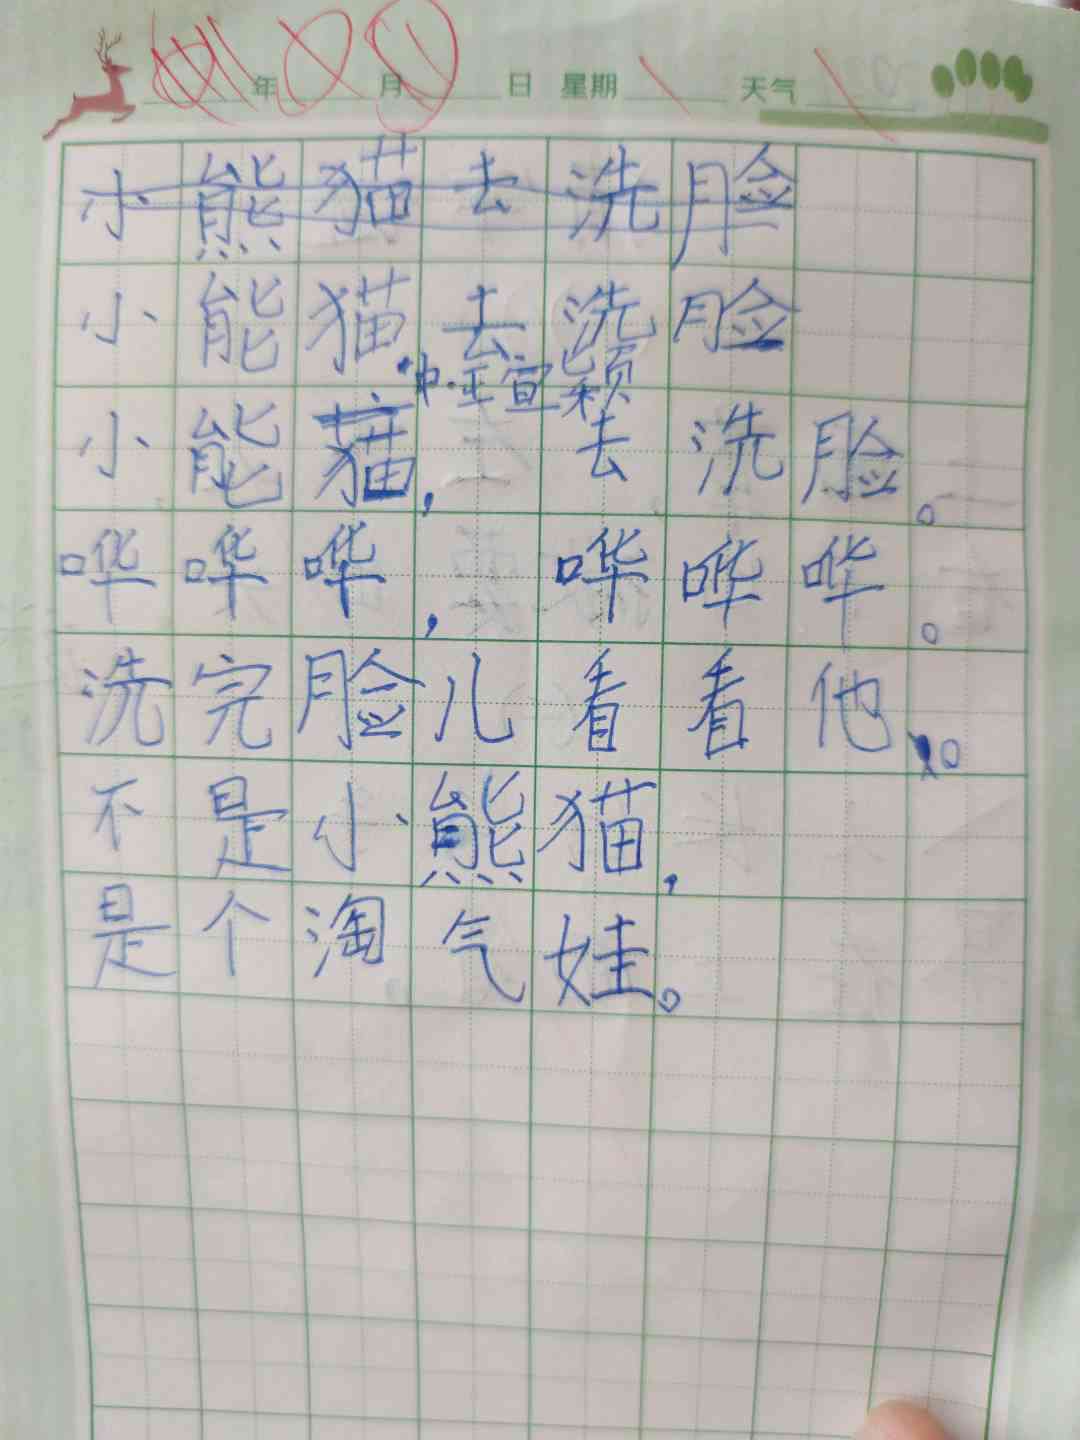 年 月 日 星期 天气
小熊猫去洗脸
小能猫去洗脸
王宣颖
小能猫，去洗脸。
哗哗哗，哗哗哗。
洗完脸儿看看他。
不是小熊猫，
是个淘气娃。